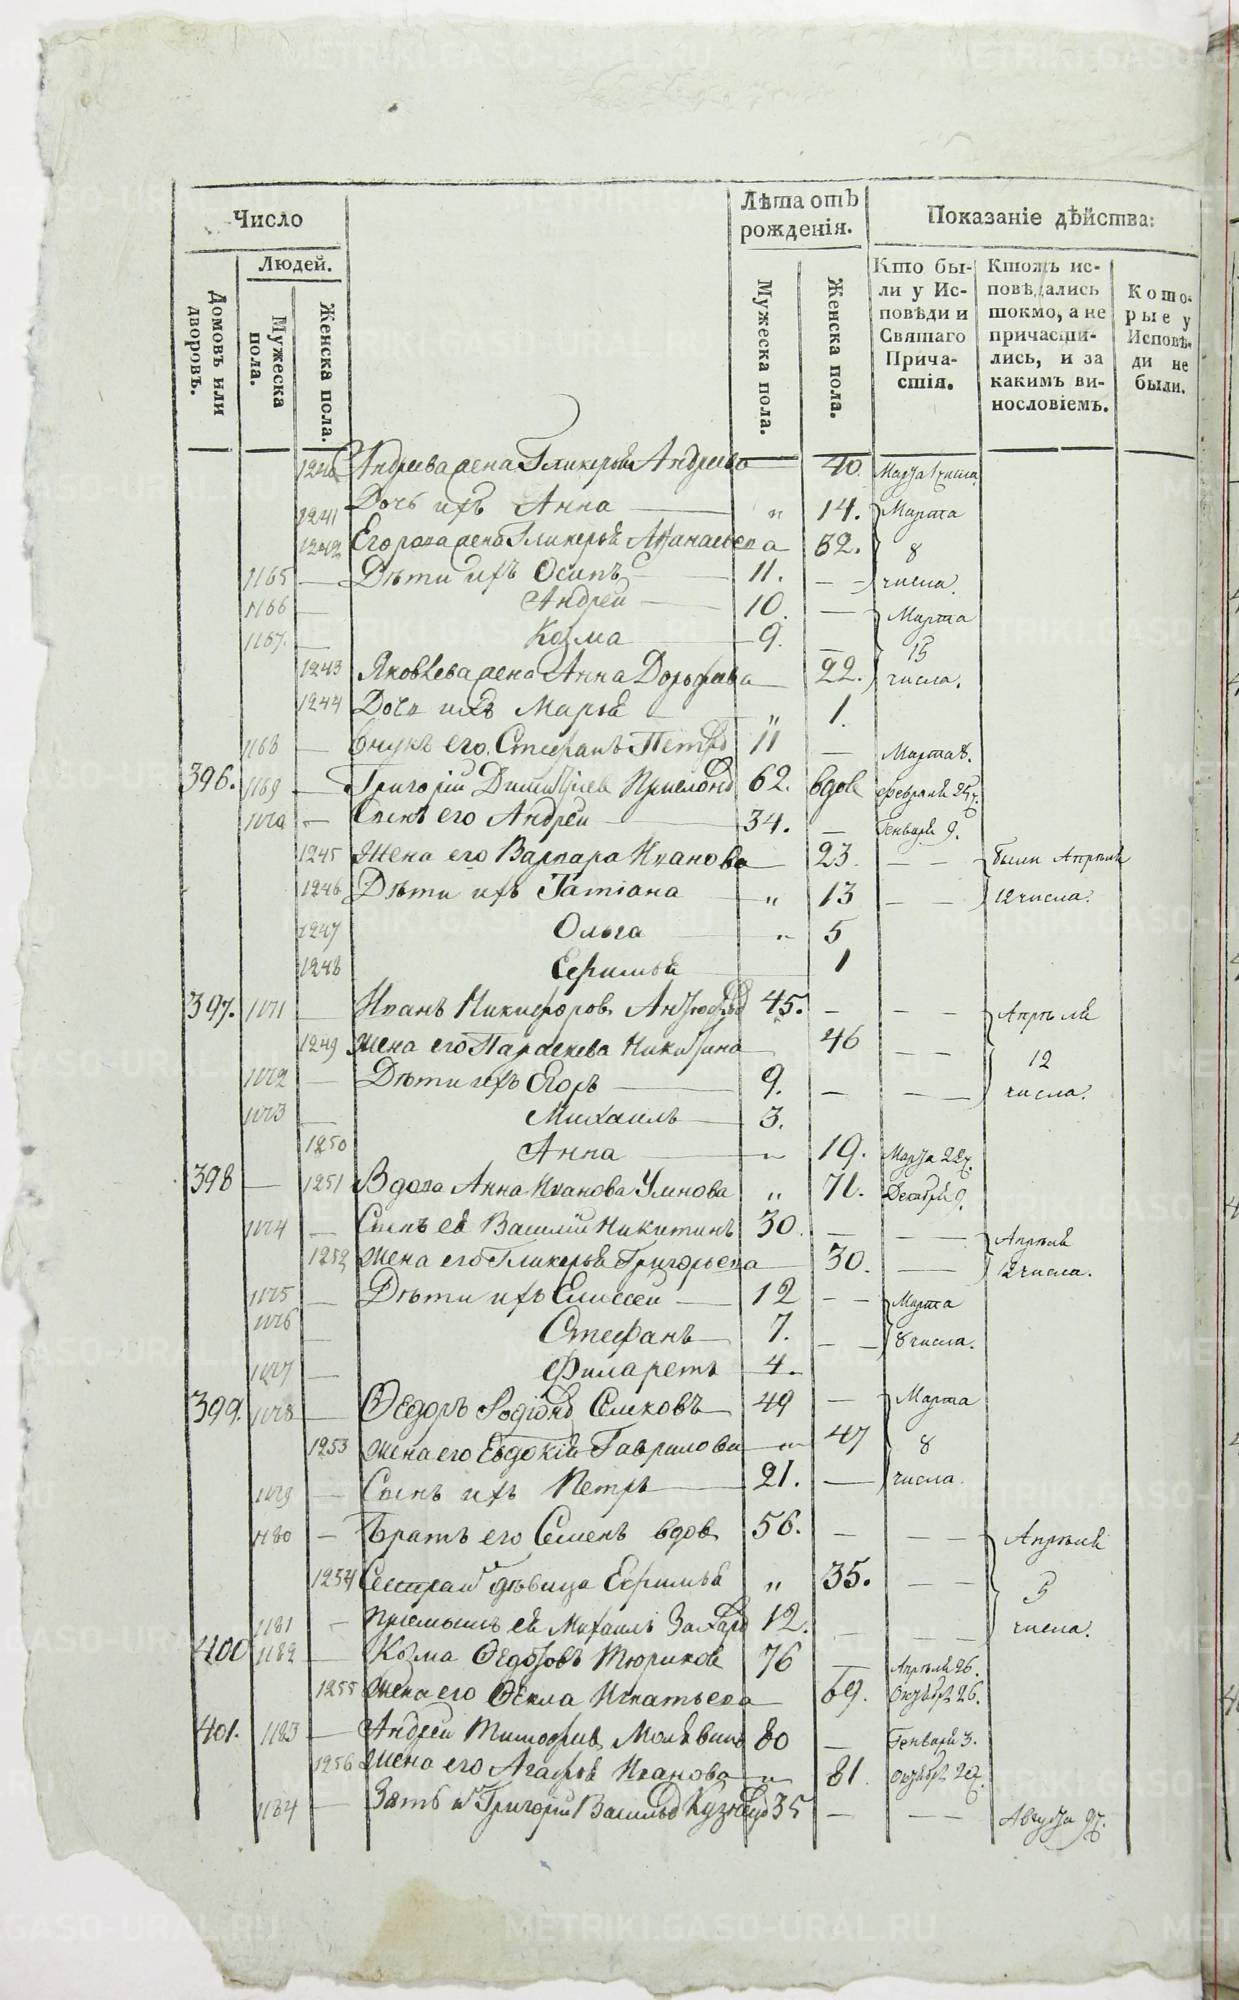 Число
Людей.
Домовъ или дворовъ.
Мужеска пола.
Женска пола.
Лѣта отъ рожденія.
Мужеска пола.
Женска пола.
Показаніе дѣйства:
Кто бы-
ли у Ис-
повѣди и
Святаго
Прича-
стія.
Ктожъ ис-
повѣдались
токмо, а не
причасти-
лись, и за
какимъ ви-
нословіемъ.
Кото-
рые у
Исповѣ-
ди не
были.
1240 Андреева жена Гликерья Андреева 40. Марта числа
1241 Дочь ихъ Анна " 14. Марта
1242 Егорова жена Гликерья Афанасьева 32. 8
1165 — Дѣти ихъ Осипъ 11. — числа.
1166 — Андрей 10. — Марта
1167. — Козма 9. — 15
1243 Яковлева жена Анна Дорофеева 22. числа.
1244 Дочь ихъ Марья " 1.
1168 — Внукъ его Стефанъ Петровъ 11 — Марта 8.
396. 1169 — Григорій Димитріев 62. вдовъ февраля 25.
1170 — Сынъ его Андрей 34. — Генваря 9.
1245 Жена его Варвара Иванова 23. — — были Апрѣля
1246 Дѣти ихъ Татіана " 13 — — 12 числа.
1247 Ольга " 5
1248 Ефимья 1
397. 1171 — Иванъ Никифоровъ 45. — — — Апрѣля
1249 Жена его Параскева Никитина 46 — — 12
1172 — Дѣти ихъ Егоръ 9. — — числа.
1173 — Михаилъ 3.
1250 Анна " 19. Марта 22.
398 — 1251 Вдова Анна Иванова Умнова " 71. Декабря 9.
1174 — Сынъ ея Василій Никитинъ 30. — — — Апрѣля
1252 Жена его Гликерья Григорьева 30. — 12 числа.
1175 — Дѣти ихъ Елисей 12 — — Марта
1176 — Стефанъ 7. — — 8 числа.
1177 — Филаретъ 4.
399. 1178 — Ѳедоръ Родіоновъ 49 — Марта
1253 Жена его Евдокія Гаврилова " 47 8
1179 — Сынъ ихъ Петръ 21. — числа.
1180 — Братъ его Семенъ вдовъ 56. — — — Апрѣля
1254 Сестра дѣвица Ефимья " 35. — — 5
1181 — Пріемышъ ея Михаилъ Захаровъ 12. — — — числа.
400 1182 — Козма Ѳедотовъ Тюриков 76 — Апрѣля 26.
1255 Жена его Ѳекла Игнатьева 69. Октября 26.
401. 1183 — Андрей Тимофеев 80 — Генваря 3.
1256 Жена его Агафья Иванова " 81 Октября 27.
1184 — Зять Григорій Васильевъ Кузнецовъ 35 — — — Августа 27.